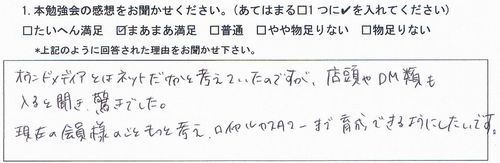 1. 本勉強会の感想をお聞かせください。(あてはまる□1つに✔を入れてください)
□たいへん満足 ☑まあまあ満足 □普通 □やや物足りない □物足りない
*上記のように回答された理由をお聞かせ下さい。
オウンドメディアとはネットだけかと考えていたのですが、店頭やDM類も
入ると聞き、驚きでした。
現在の会員様のこともっと考え、ロイヤルカスタマーまで育成できるようにしたいです。